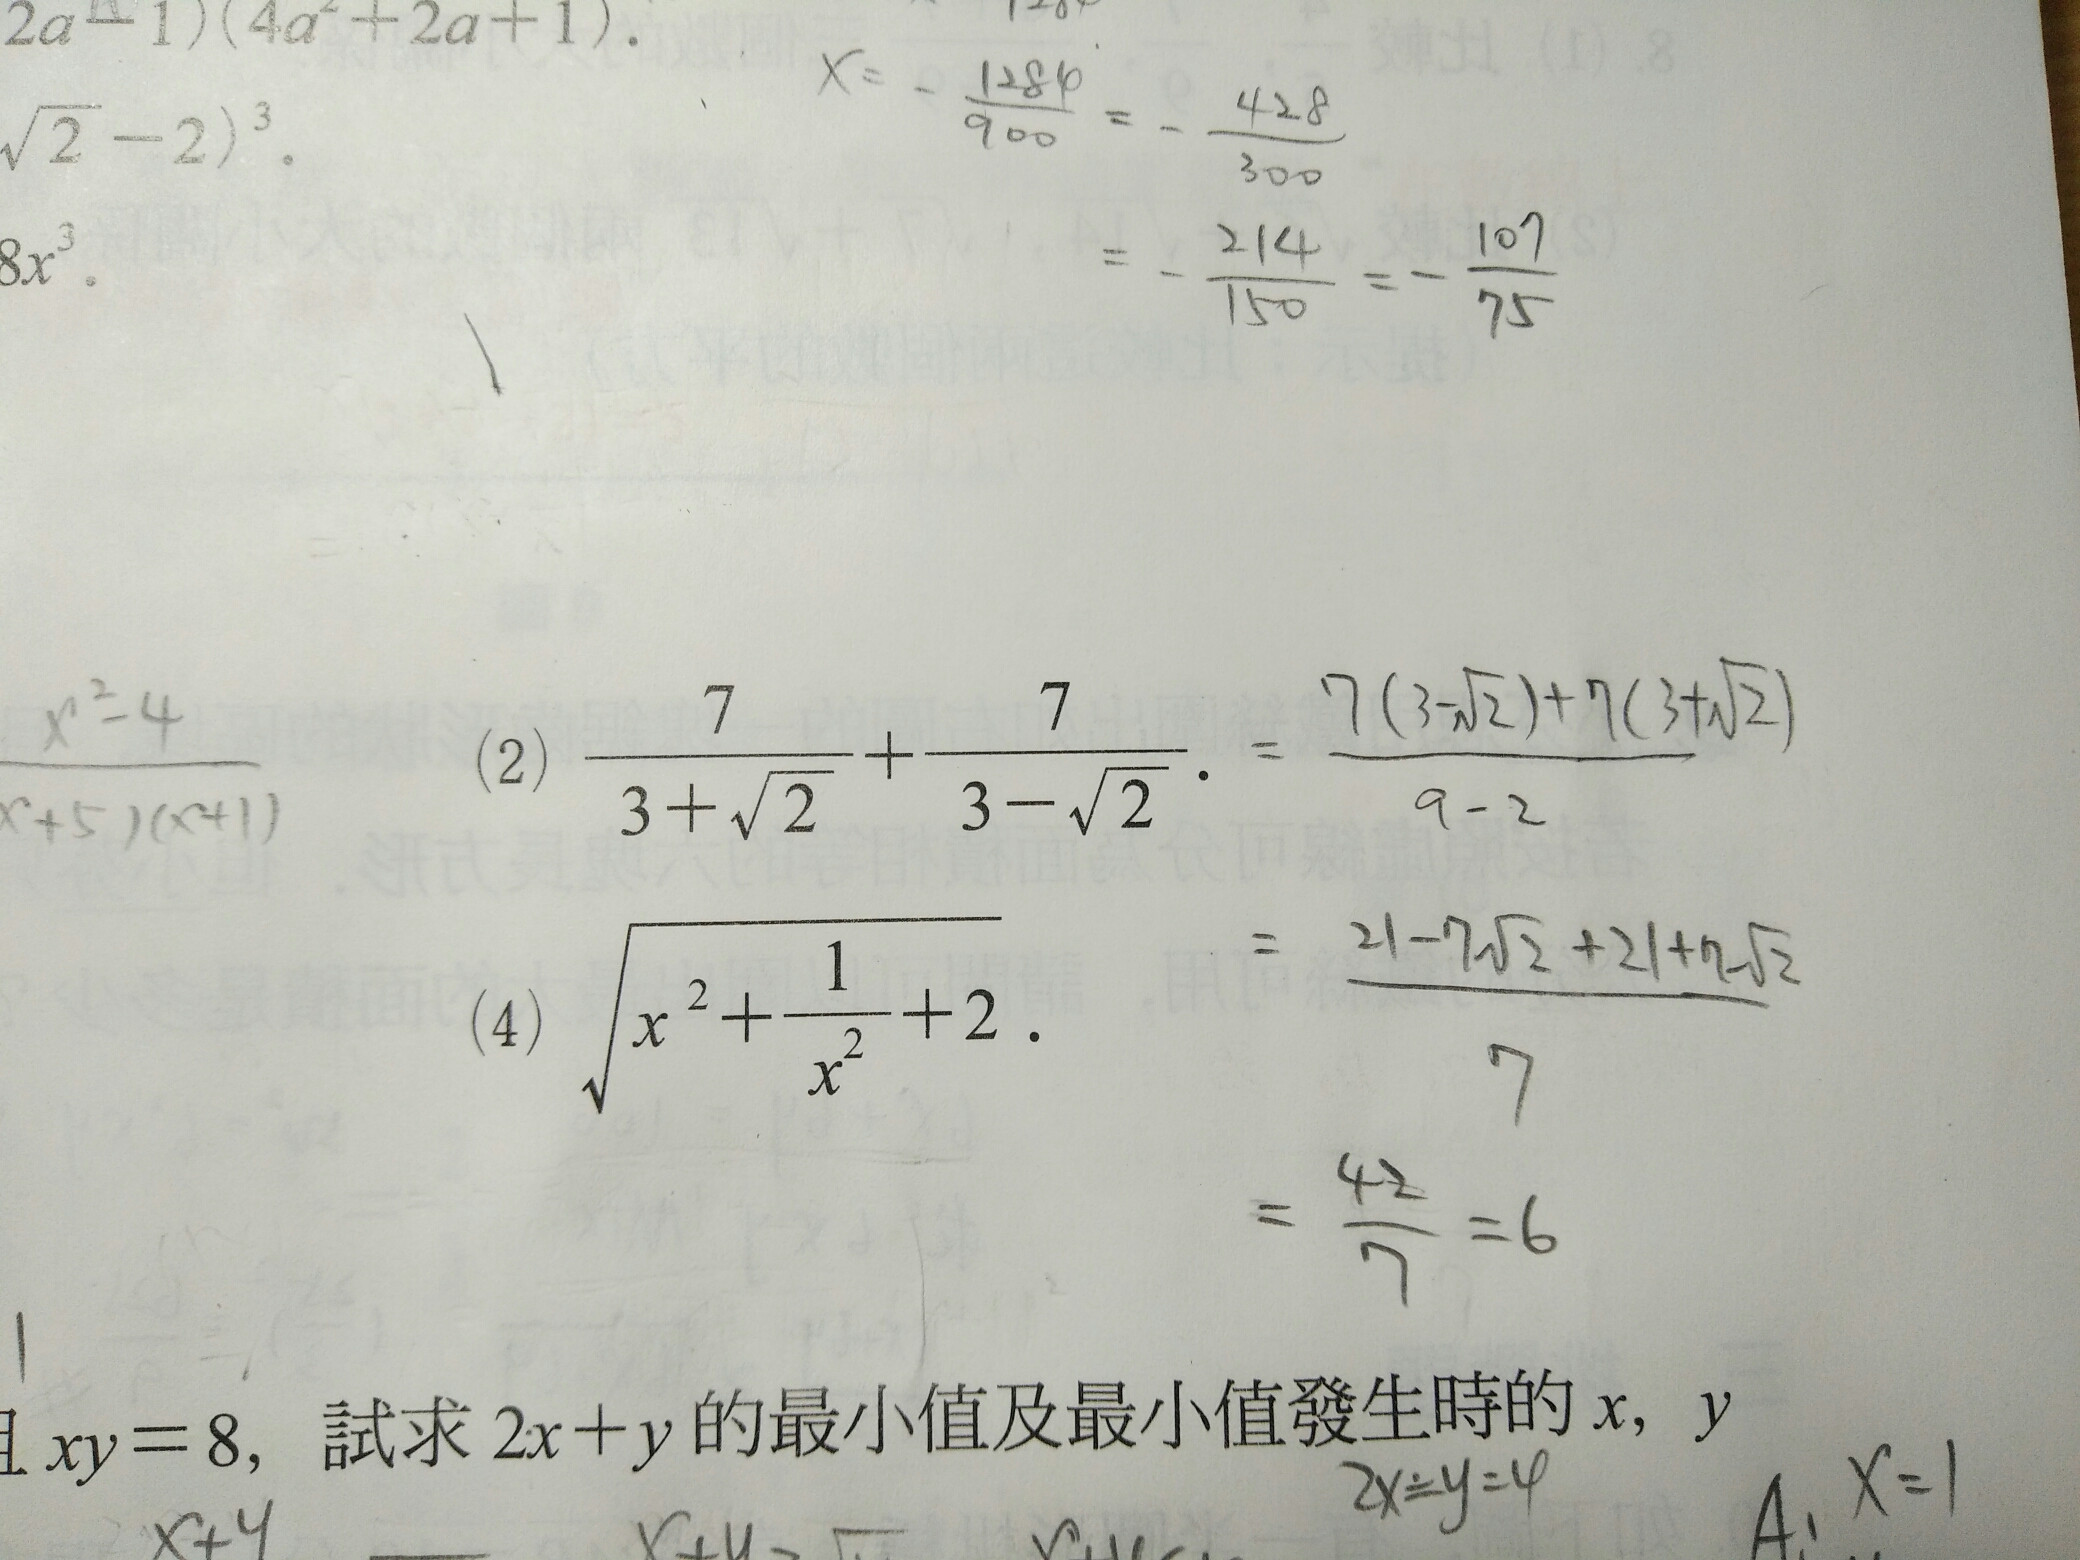 2a-1)(4a²+2a+1).
x = - 1284/900 = - 428/300
√2-2)³.
= - 214/150 = - 107/75
8x³.
x²-4/(x+5)(x+1)
(2) 7/(3+√2) + 7/(3-√2). = 7(3-√2)+7(3+√2)/9-2
(4) √(x²+1/x²+2). = 21-7√2+21+7√2/7
= 42/7 = 6
xy=8, 試求 2x+y 的最小值及最小值發生時的 x, y
2x=y=4
A: x=1
x+y